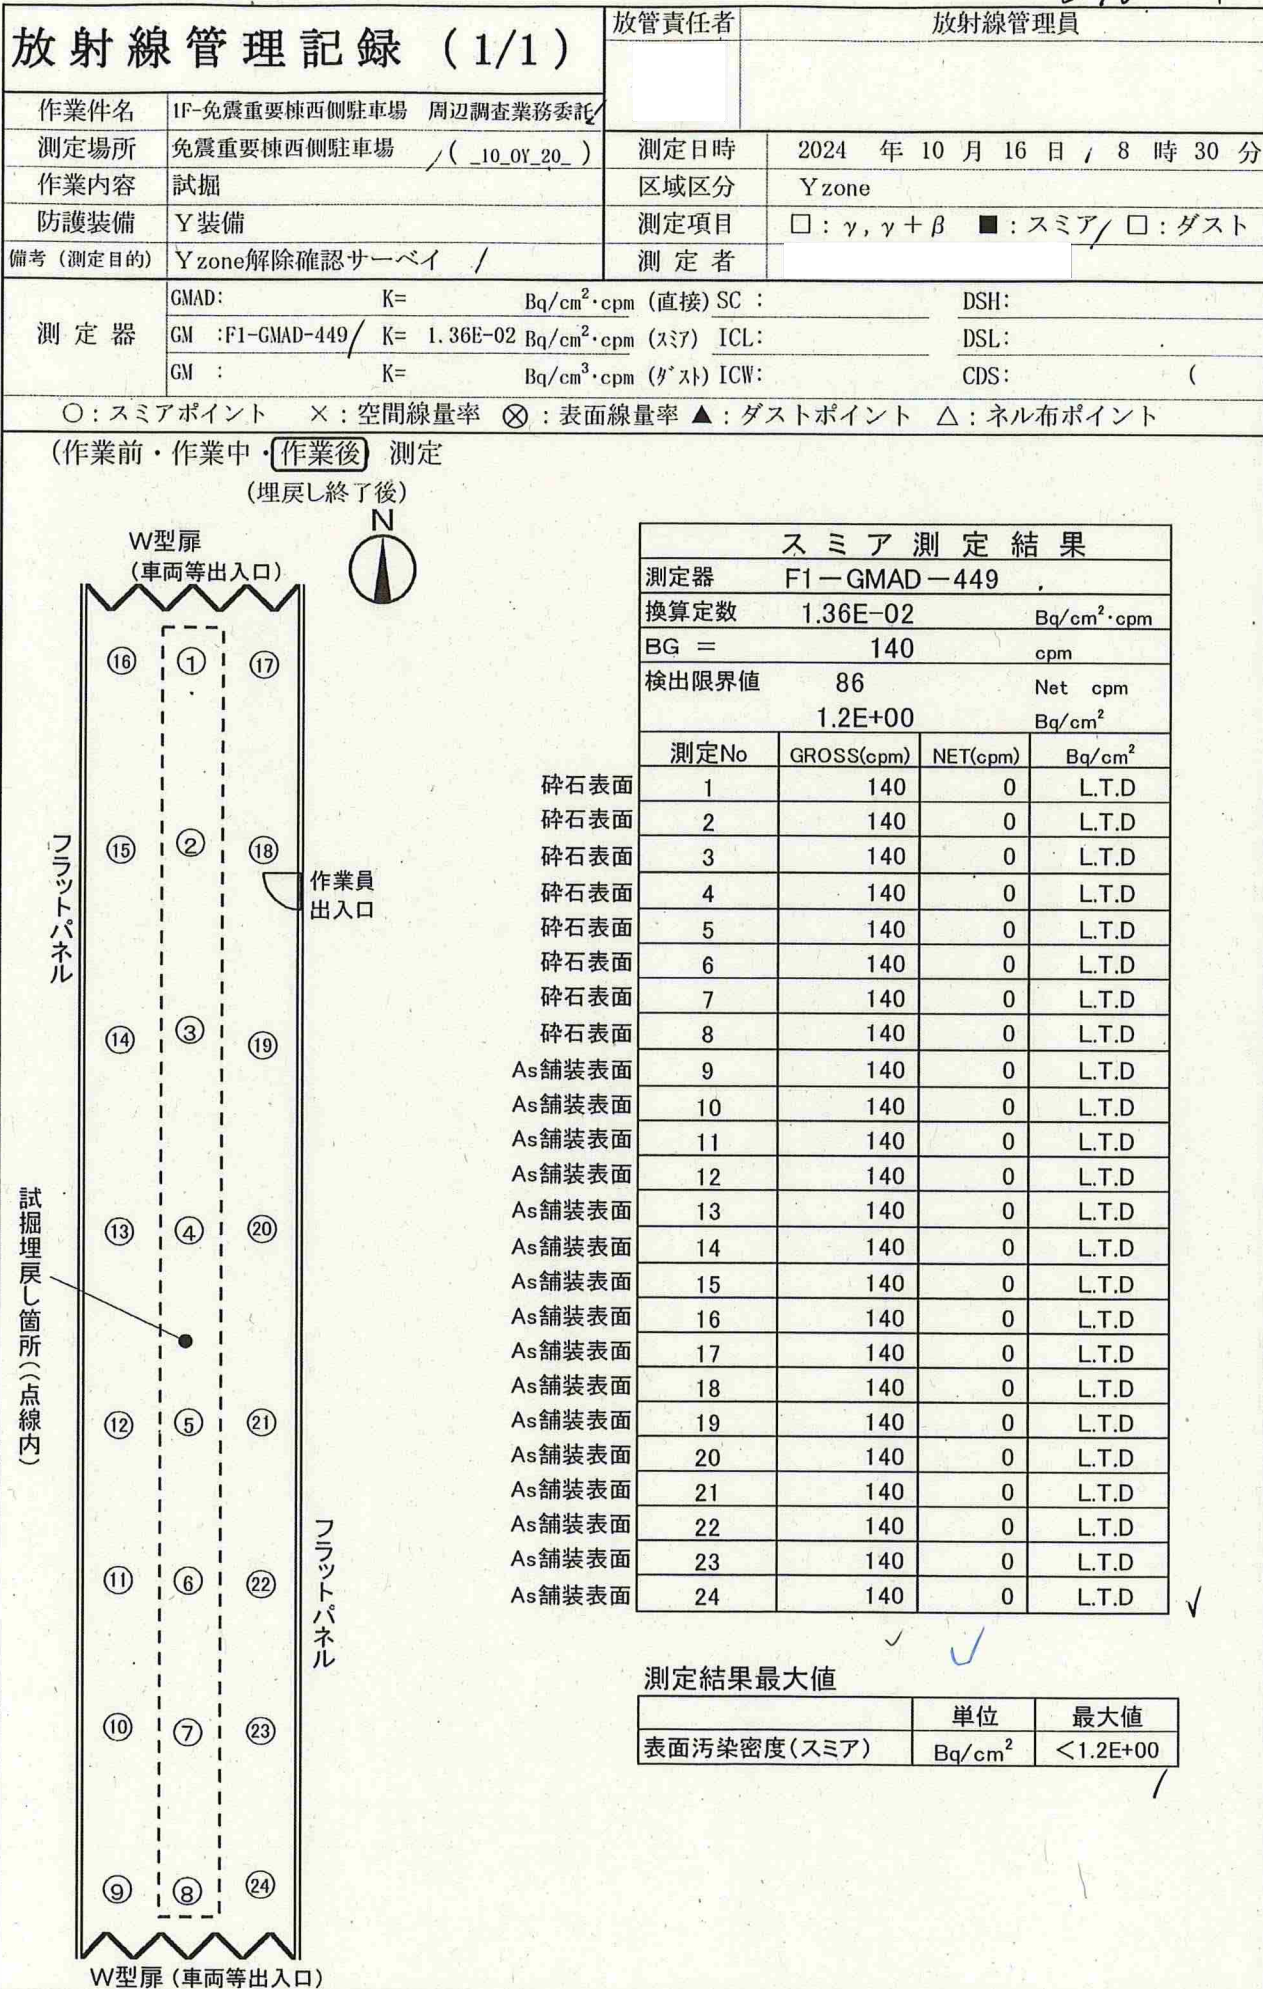 放射線管理記録 (1/1)
放管責任者 放射線管理員
作業件名 1F-免震重要棟西側駐車場 周辺調査業務委託
測定場所 免震重要棟西側駐車場 ( _10_0Y_20_ )
測定日時 2024 年 10 月 16 日 8 時 30 分
作業内容 試掘
区域区分 Y zone
防護装備 Y装備
測定項目 □:γ,γ+β ■:スミア □:ダスト
備考(測定目的) Y zone解除確認サーベイ
測定者
測定器
GMAD: K= Bq/cm²・cpm (直接) SC: DSH:
GM :F1-GMAD-449 K= 1.36E-02 Bq/cm²・cpm (スミア) ICL: DSL:
GM : K= Bq/cm³・cpm (ダスト) ICW: CDS: (
○:スミアポイント ×:空間線量率 ⊗:表面線量率 ▲:ダストポイント △:ネル布ポイント
(作業前・作業中・作業後) 測定
(埋戻し終了後)
N
W型扉
(車両等出入口)
⑯ ① ⑰
⑮ ② ⑱
作業員
出入口
フラットパネル
⑭ ③ ⑲
⑬ ④ ⑳
試掘埋戻し箇所((点線内)
⑫ ⑤ ㉑
⑪ ⑥ ㉒
フラットパネル
⑩ ⑦ ㉓
⑨ ⑧ ㉔
W型扉(車両等出入口)
スミア測定結果
測定器 F1-GMAD-449
換算定数 1.36E-02 Bq/cm²・cpm
BG = 140 cpm
検出限界値 86 Net cpm
1.2E+00 Bq/cm²
測定No GROSS(cpm) NET(cpm) Bq/cm²
砕石表面 1 140 0 L.T.D
砕石表面 2 140 0 L.T.D
砕石表面 3 140 0 L.T.D
砕石表面 4 140 0 L.T.D
砕石表面 5 140 0 L.T.D
砕石表面 6 140 0 L.T.D
砕石表面 7 140 0 L.T.D
砕石表面 8 140 0 L.T.D
As舗装表面 9 140 0 L.T.D
As舗装表面 10 140 0 L.T.D
As舗装表面 11 140 0 L.T.D
As舗装表面 12 140 0 L.T.D
As舗装表面 13 140 0 L.T.D
As舗装表面 14 140 0 L.T.D
As舗装表面 15 140 0 L.T.D
As舗装表面 16 140 0 L.T.D
As舗装表面 17 140 0 L.T.D
As舗装表面 18 140 0 L.T.D
As舗装表面 19 140 0 L.T.D
As舗装表面 20 140 0 L.T.D
As舗装表面 21 140 0 L.T.D
As舗装表面 22 140 0 L.T.D
As舗装表面 23 140 0 L.T.D
As舗装表面 24 140 0 L.T.D
測定結果最大値
単位 最大値
表面汚染密度(スミア) Bq/cm² <1.2E+00